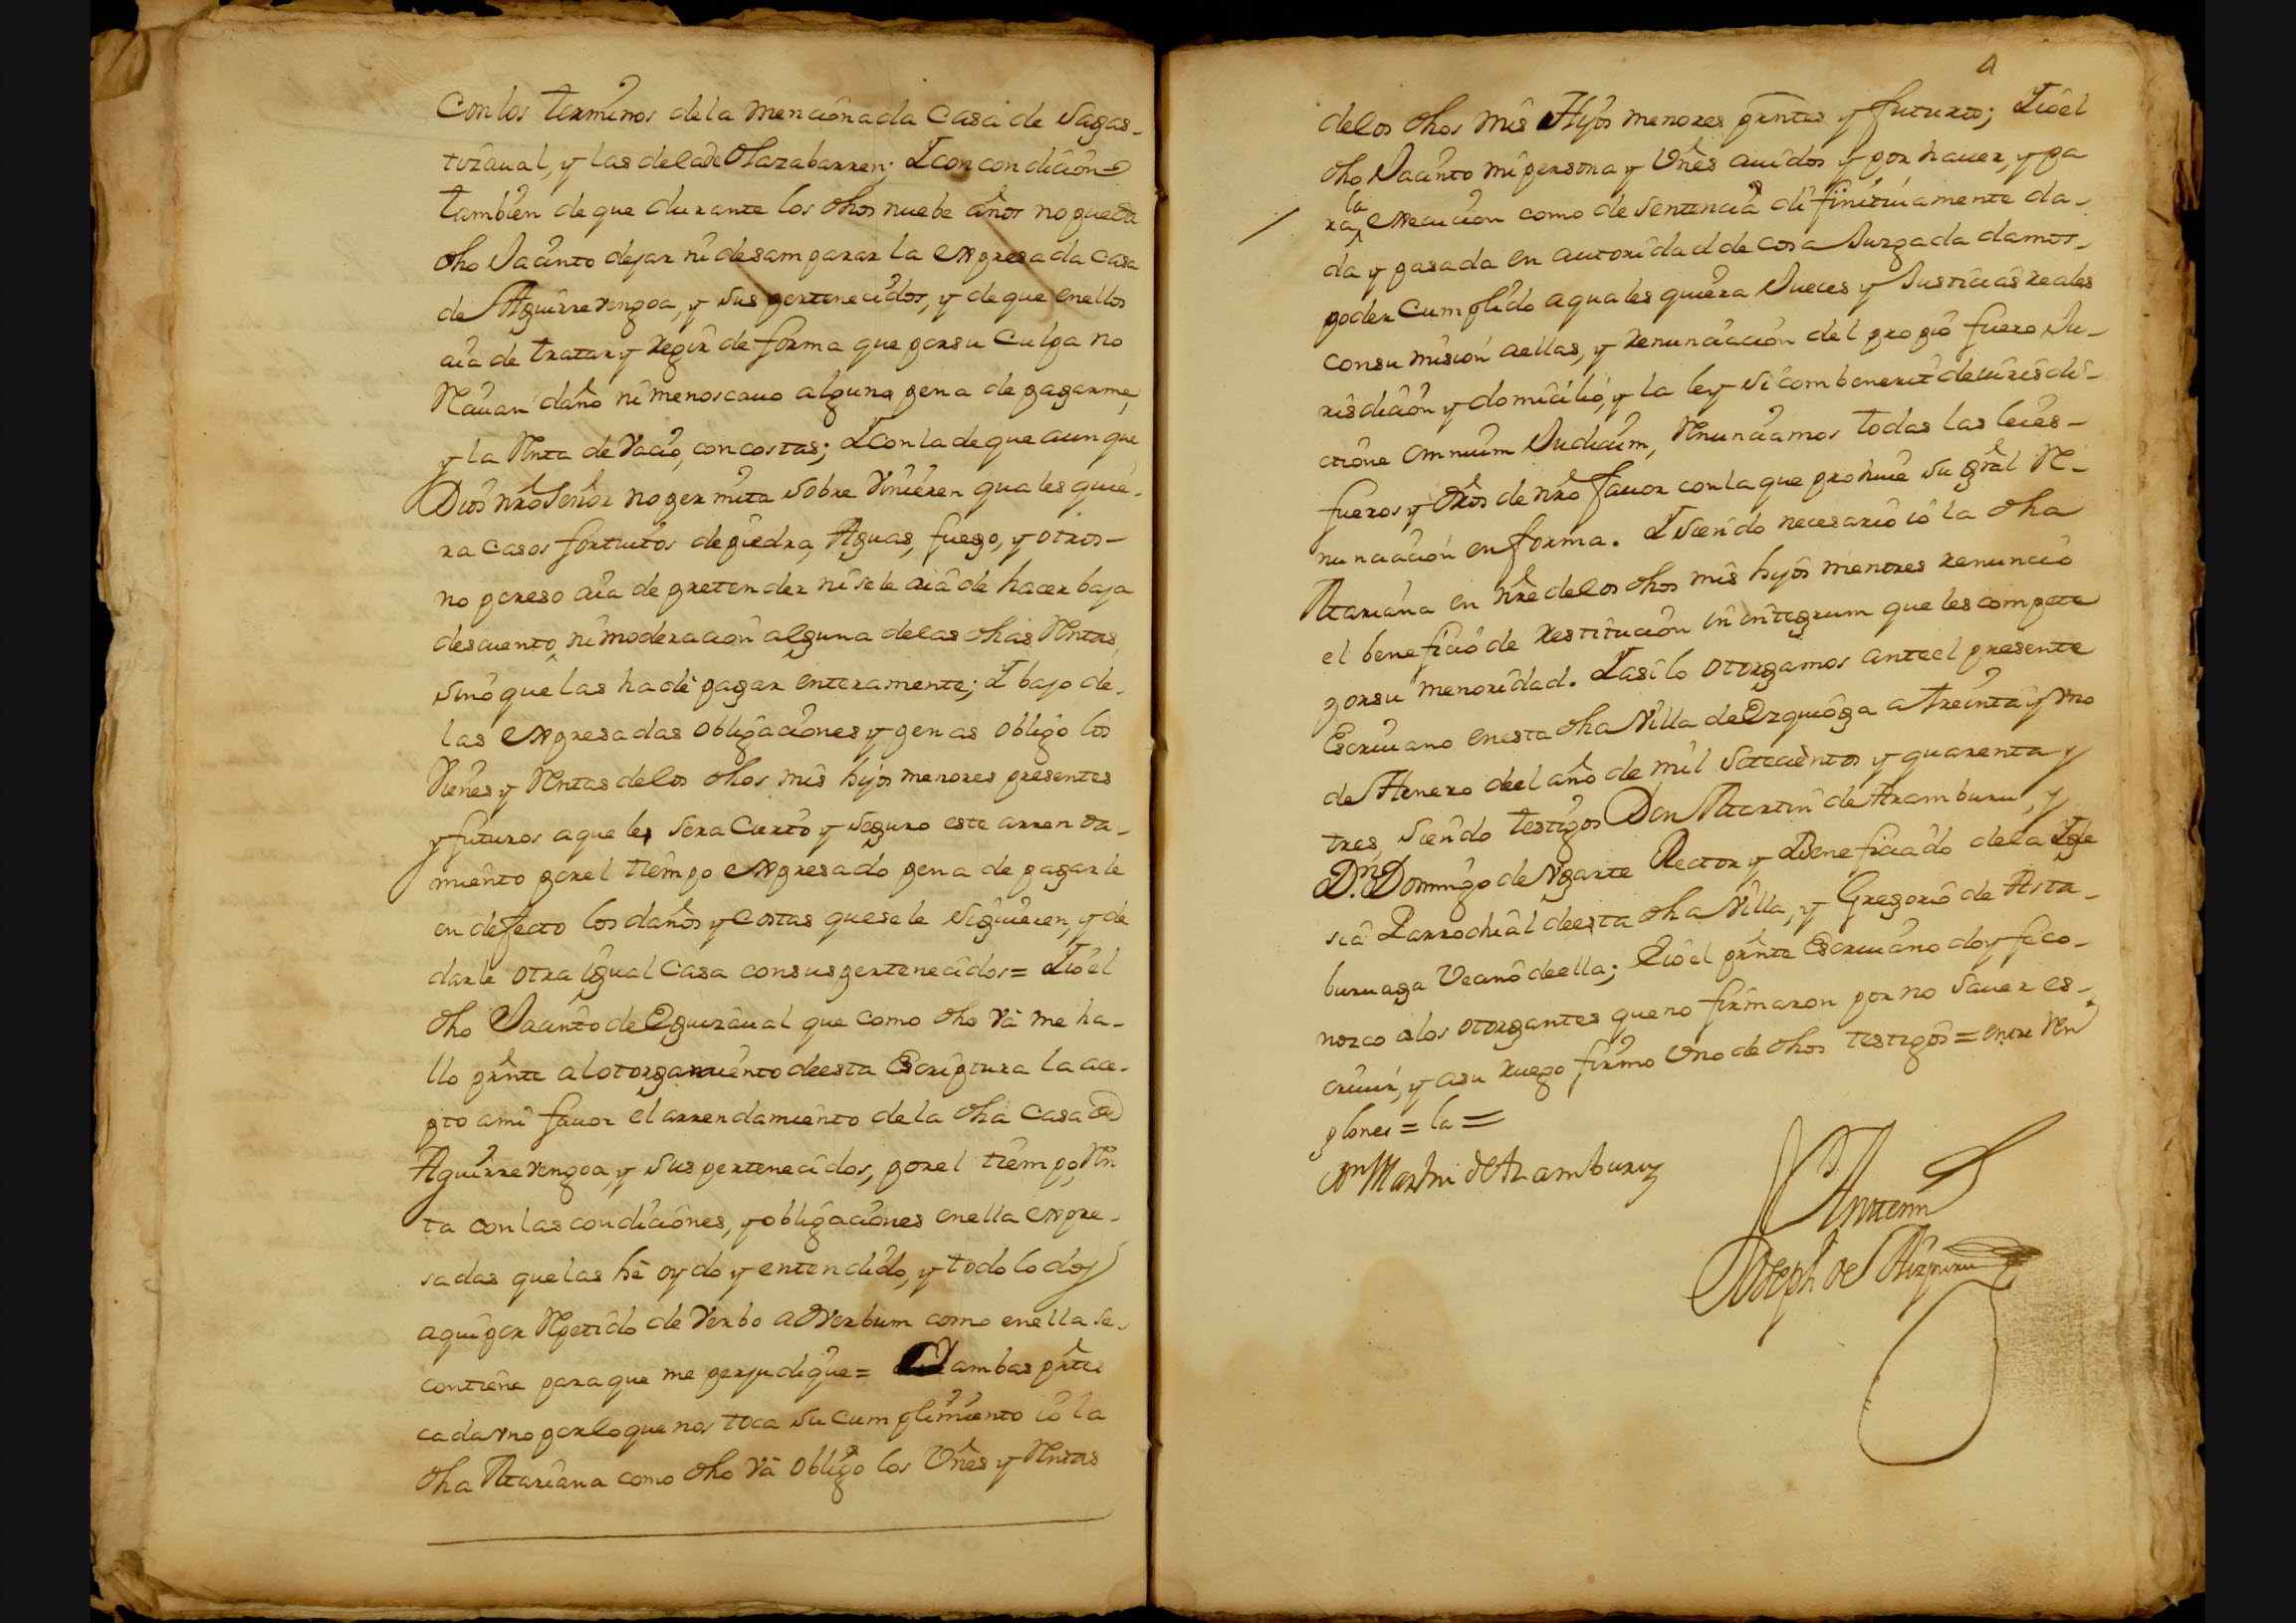 Con los terminos de la mencionada Casa de Sagas-
tizaual, y las de la de Olazabarren; Y con condicion
tambien de que durante los dhos nuebe años no pueda
dho Jacinto dejar ni desamparar la expresada casa
de Aguirrevengoa, y sus pertenecidos, y de que en ellos
aia de tratar y regir de forma que por su culpa no
reciuan daño ni menoscauo alguno pena de pagarme,
y la renta de vacio, con costas; Y con la de que aunque
Dios nro Señor no permita sobre vinieren quales quie-
ra casos fortuitos de piedra, Aguas, fuego, y otros-
no por eso aia de pretender ni se le aia de hacer baja
descuento, ni moderacion alguna de las dhas rentas,
sino que las ha de pagar enteramente; Y bajo de-
las expresadas obligaciones y penas obligo los
vienes y rentas de los dhos mis hijos menores presentes
y futuros a que les sera cierto y seguro este arrenda-
miento por el tiempo expresado pena de pagarle
en defecto los daños y costas que se le siguieren, y de
darle otra igual casa con sus pertenecidos= Y io el
dho Jacinto de Eguizaual que como dho vá me ha-
llo prnte al otorgamiento de esta Escriptura la ace-
pto a mi fauor el arrendamiento de la dha casa de
Aguirrevengoa, y sus pertenecidos, por el tiempo, ren
ta con las condiciones, y obligaciones en ella expre-
sadas que las hé oydo y entendido, y todo lo doy
aqui por repetido de verbo ad verbum como en ella se-
contiene para que me perjudique= Y ambas prtes
cada vno por lo que nos toca su cumplimiento io la
dha Mariana como dho vá obligo los vnes y rentas
4
de los dhos mis Hijos menores prntes y futuros; Y io el
dho Jacinto mi persona y vnes auidos y por hauer, y pa
la
ra execucion como de sentencia difinitiuamente da-
da y pasada en autoridad de cosa Juzgada damos-
poder cumplido a quales quiera Jueces y Justicias reales
con su mision a ellas, y renunciacion del propio fuero Ju-
risdicion y domicilio, y la ley si combenerit de iurisdi-
ctione omnium Judicum, renunciamos todas las leies-
fueros y dros de nro fauor con la que prohiue su gral re-
nunciacion en forma. Y siendo necesario io la dha
Mariana en nre de los dhos mis hijos menores renuncio
el beneficio de restitucion in integrum que les compete
por su menoridad. Y asi lo otorgamos ante el presente
Escriuano en esta dha Villa de Ezquioga a treinta y vno
de Henero de el año de mil setecientos y quarenta y
tres, siendo testigos Don Martin de Aramburu, y
Dn. Domingo de Vgarte Rector y Beneficiado de la Igle
sia Parrochial de esta dha Villa, y Gregorio de Asta-
buruaga Vecino de ella; E io el prnte Escriuano doy fe co-
nozco a los otorgantes que no firmaron por no sauer es-
criuir, y a su ruego firmo vno de dhos testigos= entre ren
glones = la =
Dn Martin de Aramburu
Antemi
Joseph de Aizpuru